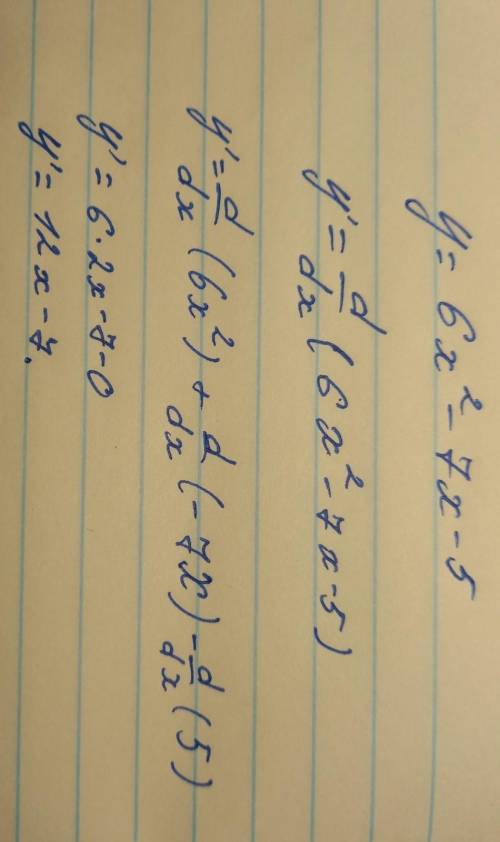 y = 6x² - 7x - 5
y' = d/dx (6x² - 7x - 5)
y' = d/dx (6x²) + d/dx (-7x) - d/dx (5)
y' = 6·2x - 7 - 0
y' = 12x - 7.